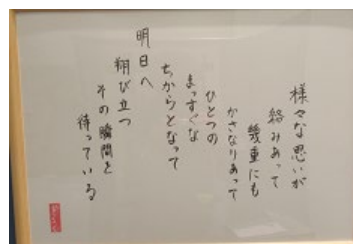 様々な思いが
絡みあって
幾重にも
かさなりあって
ひとつの
まっすぐな
ちからとなって
明日へ
翔び立つ
その瞬間を
待っている